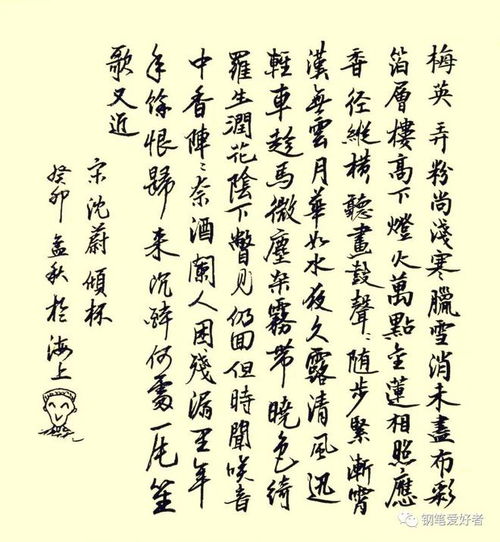 梅英弄粉尚淺寒臘雪消未盡布彩
箔層樓高下燈火萬點金蓮相照應
香径縱橫聽畫鼓聲〻随步緊漸霄
漢無雲月華如水夜久露清風迅
輕車趁馬微塵杂霧帶曉色綺
羅生潤花陰下瞥见仍回但時聞咲音
中香陣〻奈酒闌人困殘漏里年
年餘恨歸来沉醉何處一片笙
歌又近
宋沈蔚傾杯
癸卯孟秋於海上
钢笔爱好者